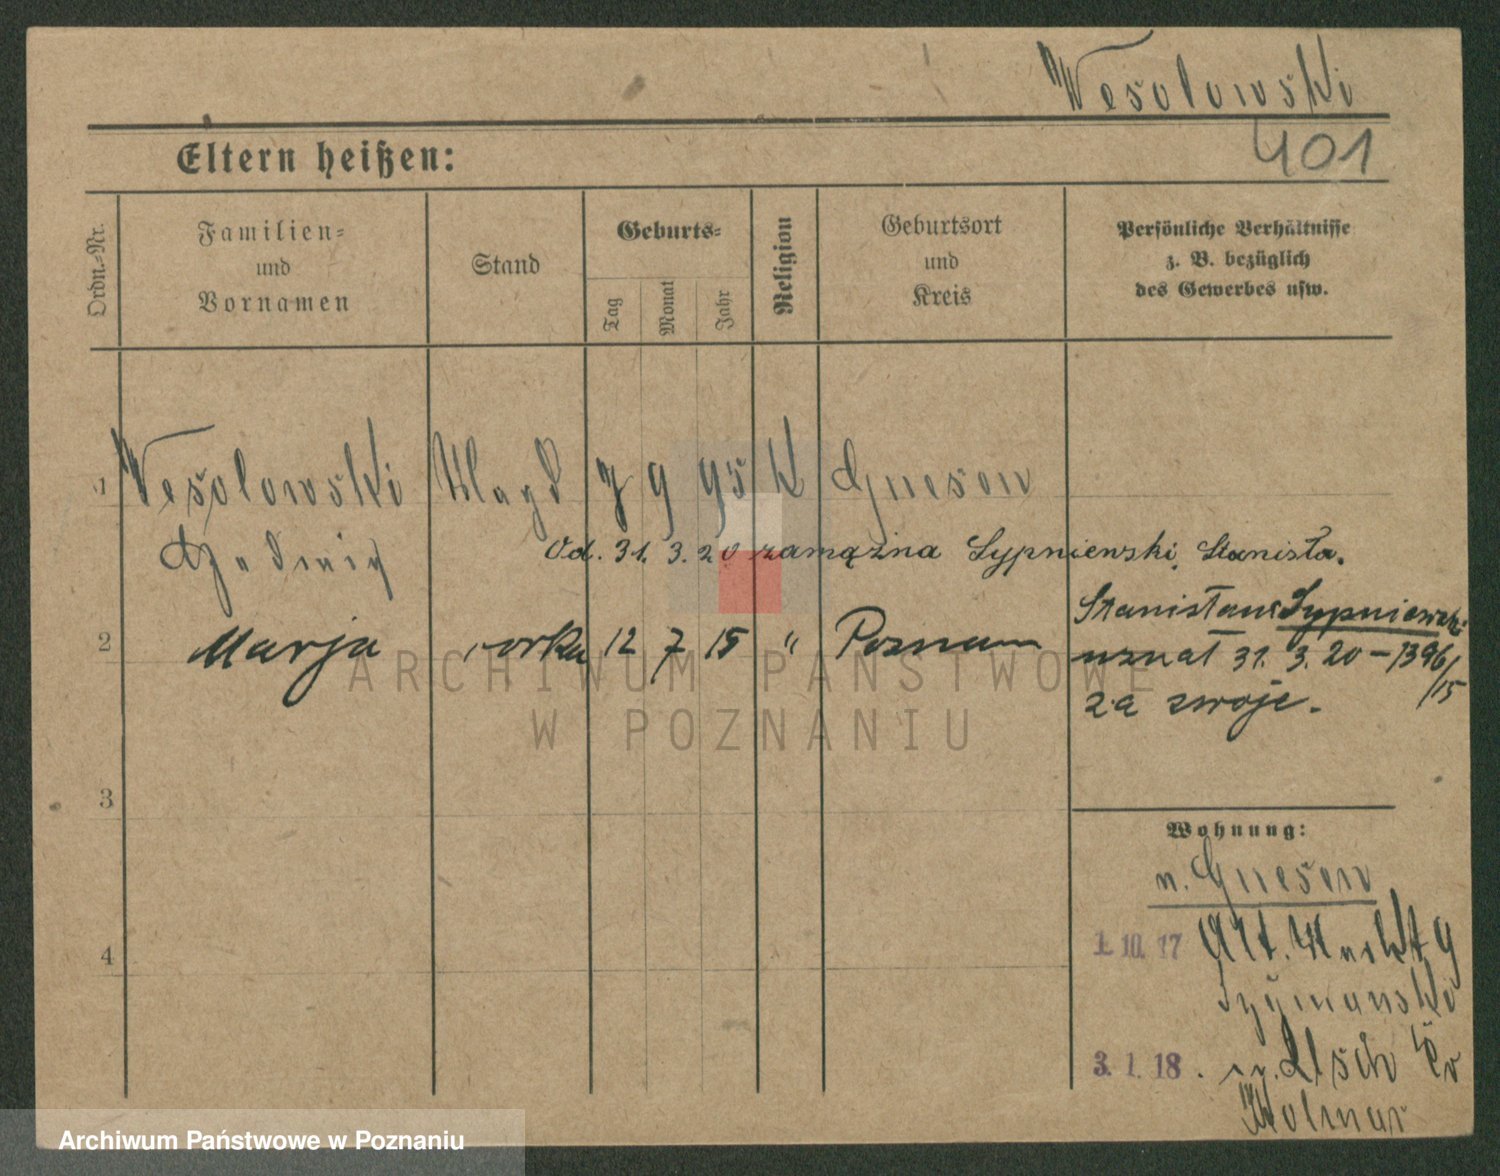 Wesolowski
401
Eltern heißen:
Ordn.-Nr.
Familien-
und
Vornamen
Stand
Geburts-
Tag
Monat
Jahr
Religion
Geburtsort
und
Kreis
Persönliche Verhältnisse
z. B. bezüglich
des Gewerbes usw.
1 Wesolowski Magd 7 9 95 K Gnesen
Hedwig
Od. 31. 3. 20 zamężna Sypniewski, Stanisła.
2 Marja córka 12 7 15 " Poznań
Stanisław Sypniewski
uznał 31. 3. 20 – 1396/15
za swoje.
3
4
Wohnung:
n. Gnesen
1. 10. 17 Alt. Markt 9
Szymanski
3. 1. 18. Usch Kr
Kolmar
ARCHIWUM PAŃSTWOWE
W POZNANIU
Archiwum Państwowe w Poznaniu